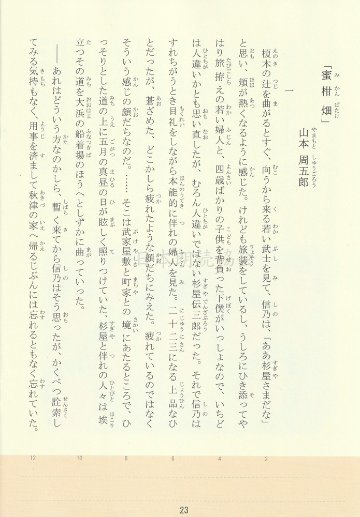 「蜜柑畑」
山本 周五郎
一
榎木の辻を曲がるとすぐ、向うから来る若い武士を見て、信乃は、「ああ杉屋さまだな」
と思い、頬が熱くなるように感じた。けれども旅装をしているし、うしろにひき添ってや
はり旅拵えの若い婦人と、四歳ばかりの子供を背負った下僕がいっしょなので、いちど
は人違いかとも思い直したが、むろん人違いではない杉屋伝三郎だった。それで信乃は
すれちがうとき目礼をしながら本能的に伴れの婦人を見た。二十二、三になる上品なひ
とだったが、蒼ざめた、どこかしら疲れたような顔だちにみえた。疲れているのではなく
そういう感じの顔だちなのだ。……そこは武家屋敷と町家との境にあたるところで、ひ
っそりとした道の上に五月の真昼の日が眩しく照りつけていた、杉屋と伴れの人々は埃
立つその道を大浜の船着場のほうへとしずかに曲っていった。
――あれはどういう方なのかしら、暫く来てから信乃はそう思ったが、かくべつ詮索し
てみる気持もなく、用事を済まして秋津の家へ帰るじぶんには忘れるともなく忘れていた。
2
4
6
8
10
12
23